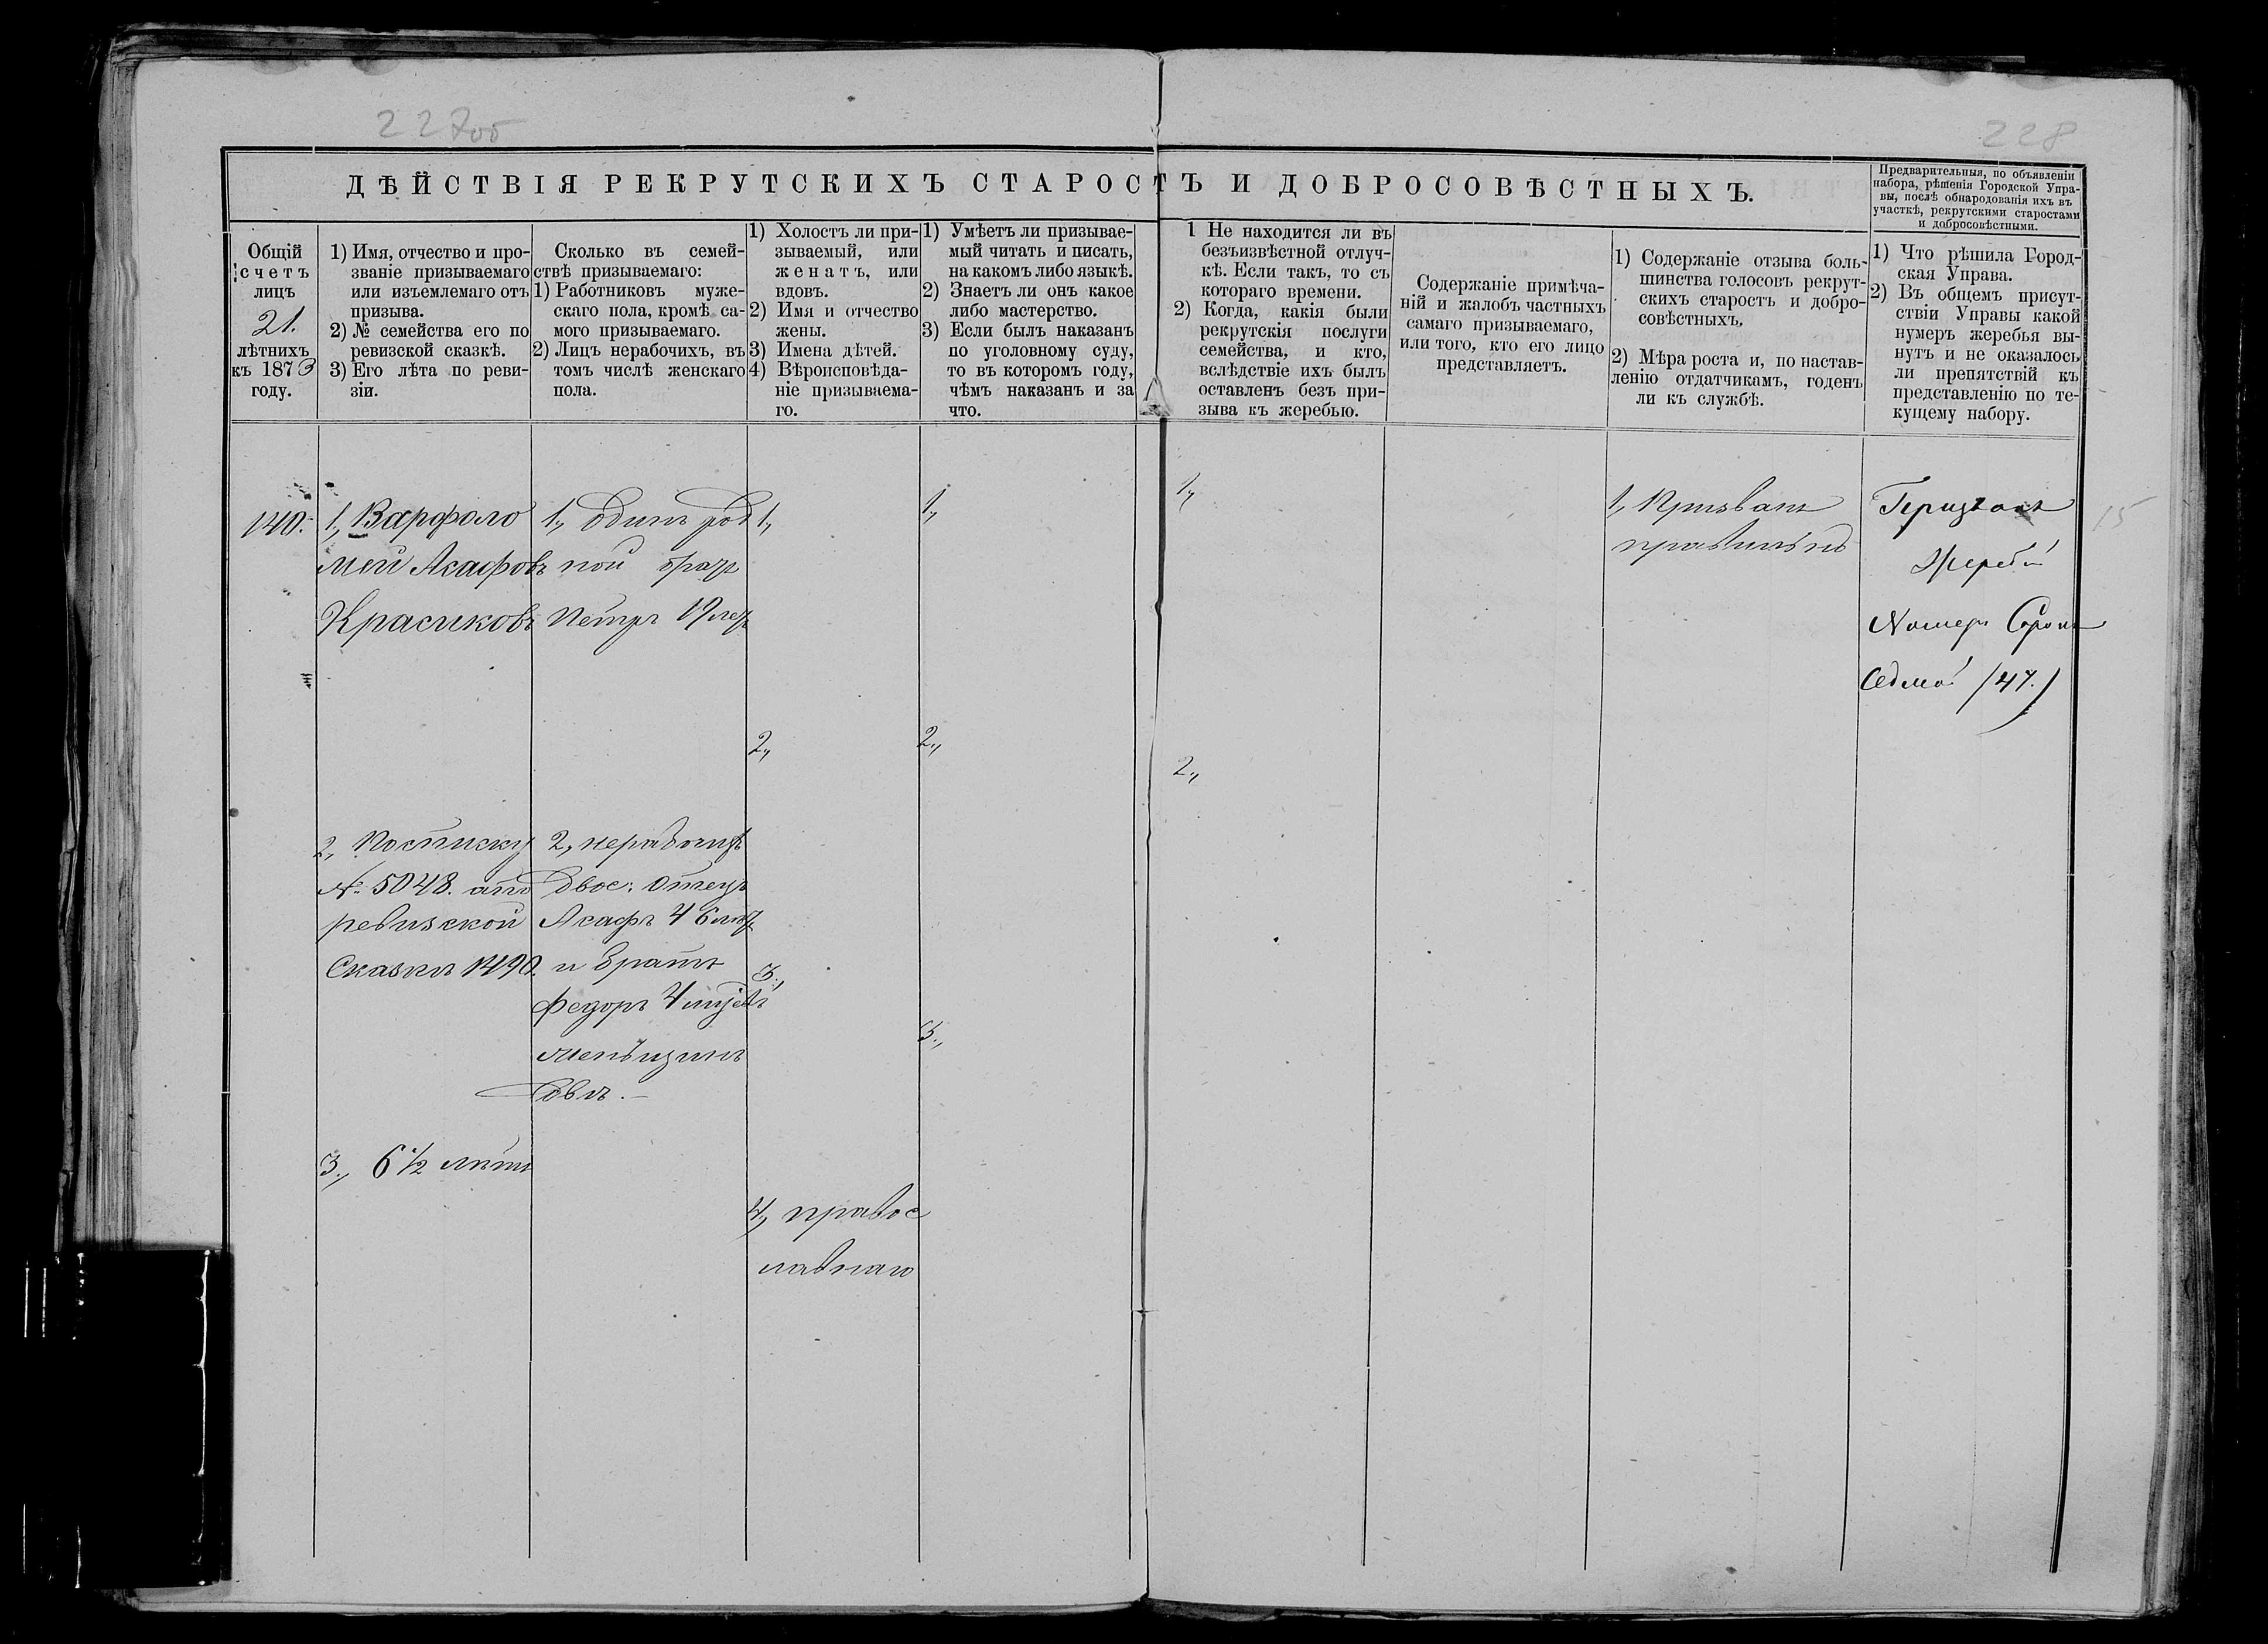 227об
228
ДѢЙСТВІЯ РЕКРУТСКИХЪ СТАРОСТЪ И ДОБРОСОВѢСТНЫХЪ.
Предварительныя, по объявленіи
набора, рѣшенія Городской Упра-
вы, послѣ обнародованія ихъ въ
участкѣ, рекрутскими старостами
и добросовѣстными.
Общій
счетъ
лицъ
21.
лѣтнихъ
къ 1873
году.
1) Имя, отчество и про-
званіе призываемаго
или изъемлемаго отъ
призыва.
2) № семейства его по
ревизской сказкѣ.
3) Его лѣта по реви-
зіи.
Сколько въ семей-
ствѣ призываемаго:
1) Работниковъ муже-
скаго пола, кромѣ са-
мого призываемаго.
2) Лицъ нерабочихъ, въ
томъ числѣ женскаго
пола.
1) Холостъ ли при-
зываемый, или
женатъ, или
вдовъ.
2) Имя и отчество
жены.
3) Имена дѣтей.
4) Вѣроисповѣда-
ніе призываема-
го.
1) Умѣетъ ли призывае-
мый читать и писать,
на какомъ либо языкѣ.
2) Знаетъ ли онъ какое
либо мастерство.
3) Если былъ наказанъ
по уголовному суду,
то въ которомъ году,
чѣмъ наказанъ и за
что.
1 Не находится ли въ
безъизвѣстной отлуч-
кѣ. Если такъ, то съ
котораго времени.
2) Когда, какія были
рекрутскія послуги
семейства, и кто,
вслѣдствіе ихъ былъ
оставленъ безъ при-
зыва къ жеребью.
Содержаніе примѣча-
ній и жалобъ частныхъ
самаго призываемаго,
или того, кто его лицо
представляетъ.
1) Содержаніе отзыва боль-
шинства голосовъ рекрут-
скихъ старостъ и добро-
совѣстныхъ.
2) Мѣра роста и, по настав-
ленію отдатчикамъ, годенъ
ли къ службѣ.
1) Что рѣшила Город-
ская Управа.
2) Въ общемъ присут-
ствіи Управы какой
нумеръ жеребья вы-
нутъ и не оказалось
ли препятствій къ
представленію по те-
кущему набору.
140.
1, Варфоло
мей Асафовъ
Красиковъ
2, Посписку
№ 5048. апо
ревизской
Сказкѣ 1490.
3, 6 1/2 лѣтъ
1, Одинъ род
ной братъ
Петръ 19 лѣтъ
2, нерабочихъ
двое: Отецъ
Асафъ 46 лѣтъ
и братъ
Федоръ 4 лицъ
женщинъ
двѣ.
1,
2,
3,
4, правос
лавнаго
1,
2,
3,
1,
2,
1, Призванъ
правильно
Жребій
Номеръ Сорокъ
Седмой (47.)
15